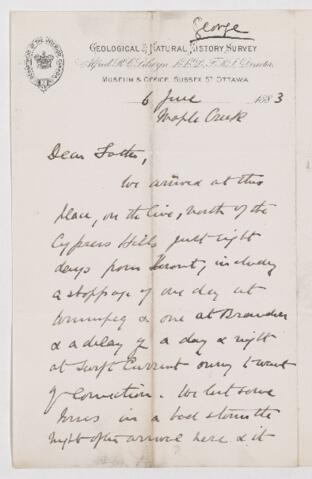 George
GEOLOGICAL & NATURAL HISTORY SURVEY
Alfred R. C. Selwyn, L.L.D., F.R.S. Director
MUSEUM & OFFICE, SUSSEX ST OTTAWA
6 June 1883
Maple Creek
Dear Father,
We arrived at this
place, on the line, north of the
Cypress Hills just eight
days from Toronto, including
a stoppage of one day at
Winnipeg & one at Brandon
& a delay of a day & night
at Swift Current owing to want
of connection. We had some
in a bad storm the
night after arrival here & it